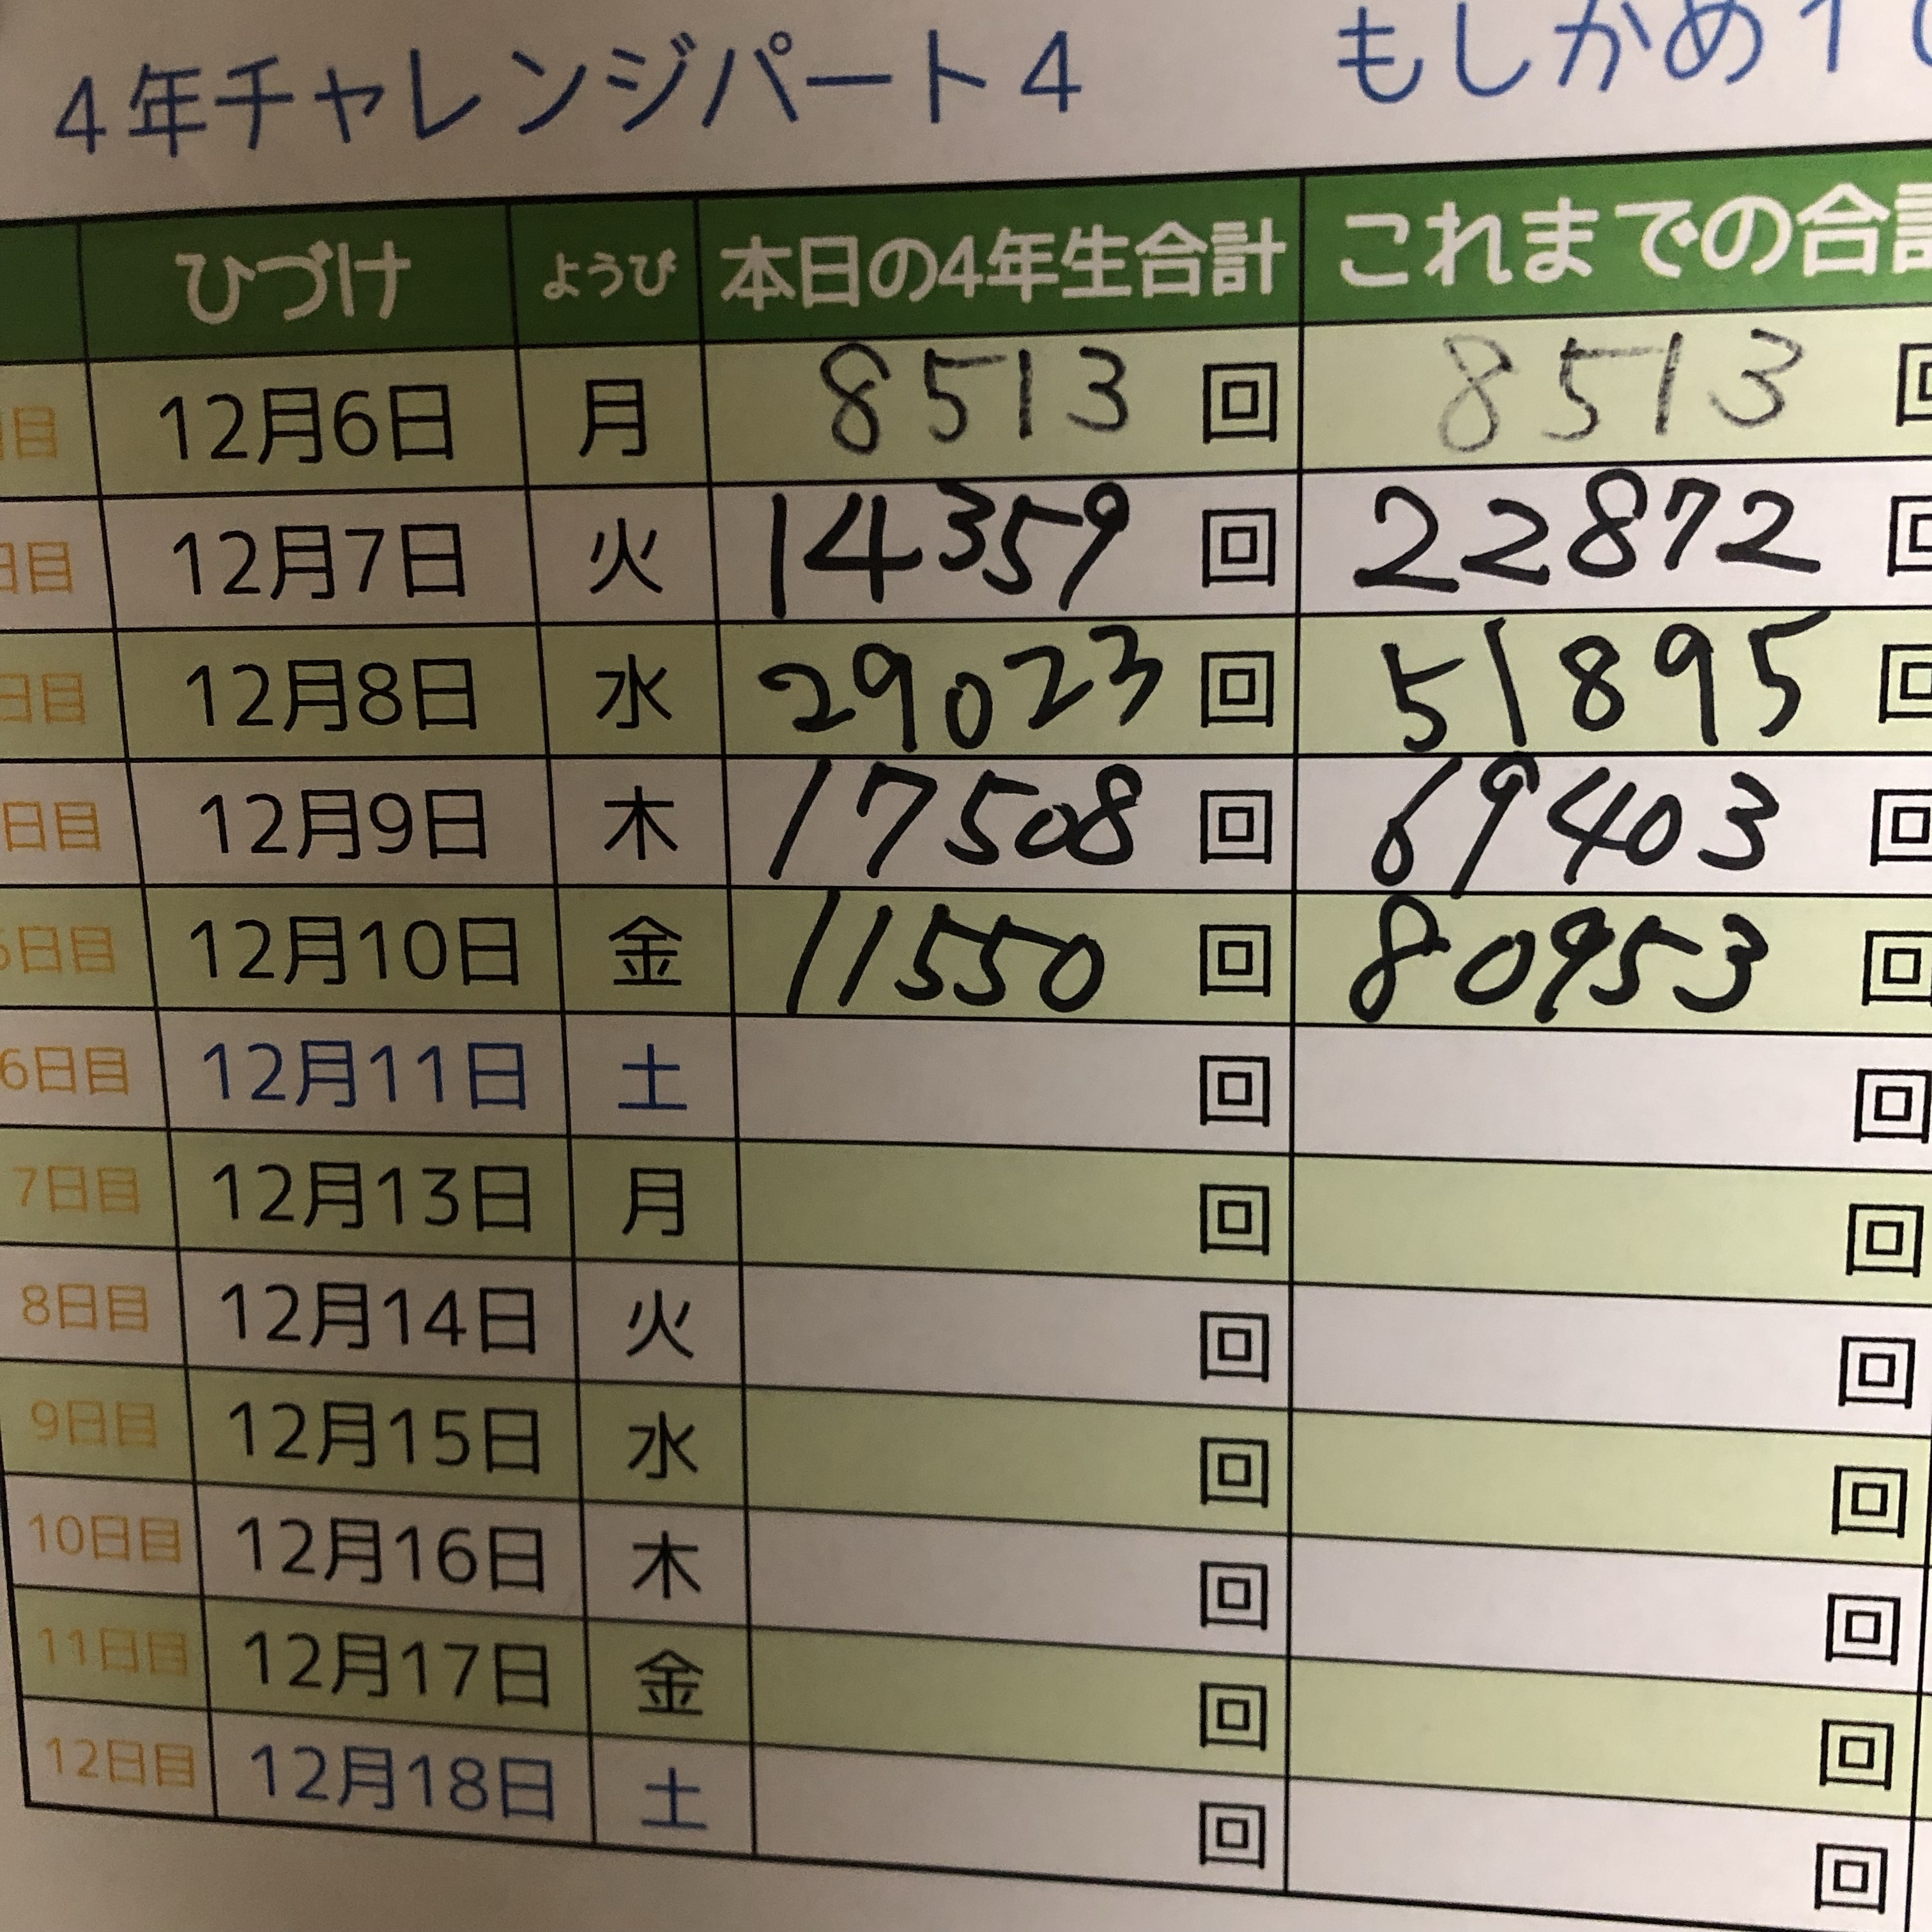 4年チャレンジパート4 もしかめ1
ひづけ ようび 本日の4年生合計 これまでの合計
日目 12月6日 月 8513 回 8513 回
日目 12月7日 火 14359 回 22872 回
日目 12月8日 水 29023 回 51895 回
日目 12月9日 木 17508 回 69403 回
5日目 12月10日 金 11550 回 80953 回
6日目 12月11日 土 回 回
7日目 12月13日 月 回 回
8日目 12月14日 火 回 回
9日目 12月15日 水 回 回
10日目 12月16日 木 回 回
11日目 12月17日 金 回 回
12日目 12月18日 土 回 回